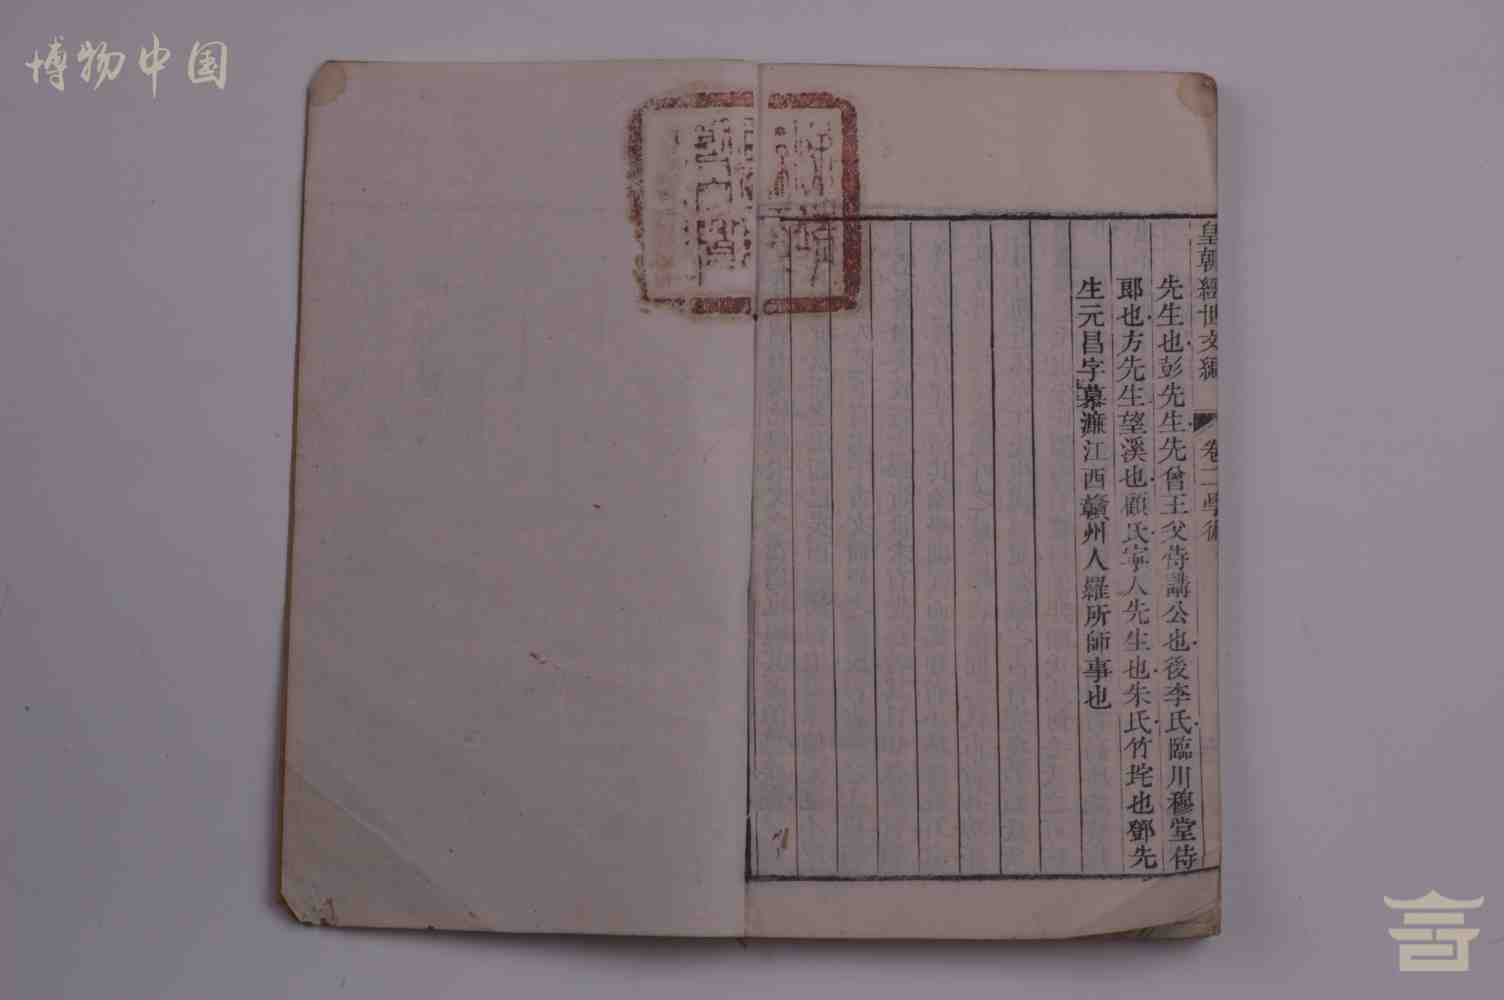 博物中国
皇朝經世文編 卷二學術
先生也彭先生先曾王父侍講公也後李氏臨川穆堂侍
郎也方先生望溪也顧氏寧人先生也朱氏竹垞也鄧先
生元昌字慕濂江西贛州人羅所師事也